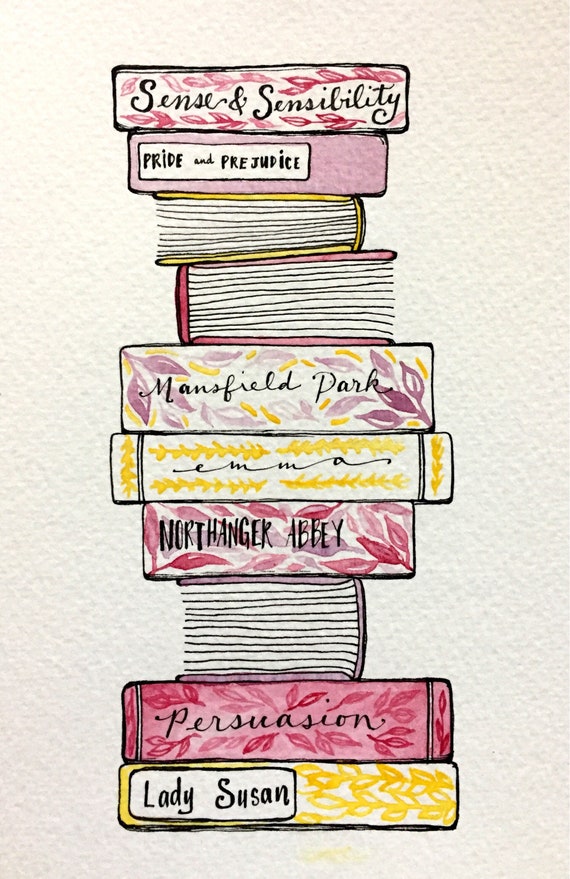 Sense & Sensibility
PRIDE and PREJUDICE
Mansfield Park
emma
NORTHANGER ABBEY
Persuasion
Lady Susan